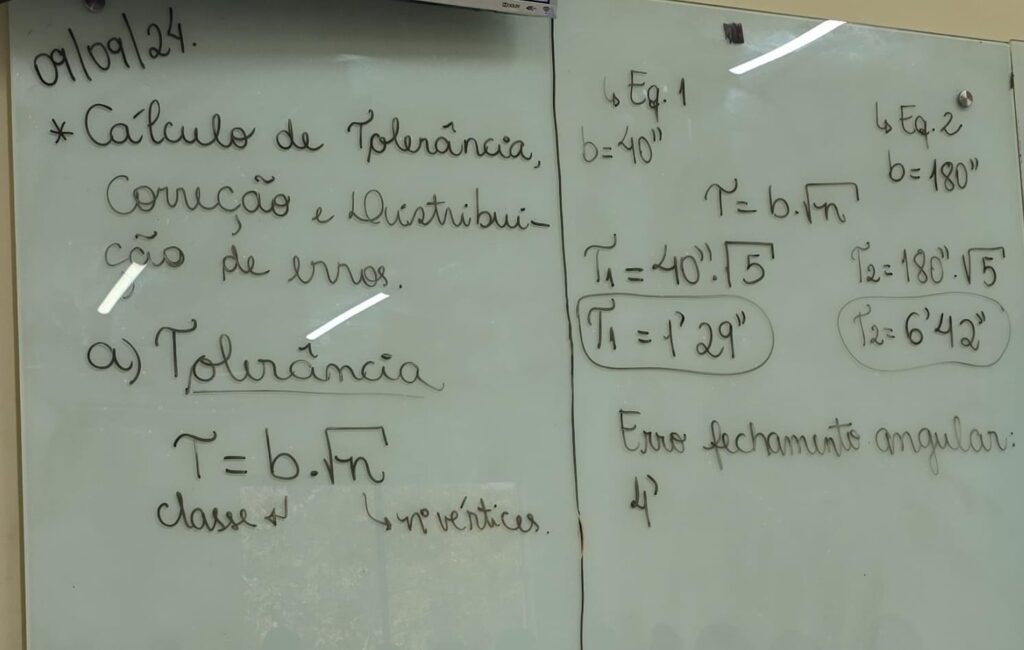 09/09/24.
* Cálculo de Tolerância,
Correção e Distribui-
ção de erros.
a) Tolerância
T = b.√n
classe ↲ ↳ nº vértices.
↳ Eq. 1
b = 40"
↳ Eq. 2
b = 180"
T = b.√n
T1 = 40".√5
T1 = 1' 29"
T2 = 180".√5
T2 = 6' 42"
Erro fechamento angular:
4'